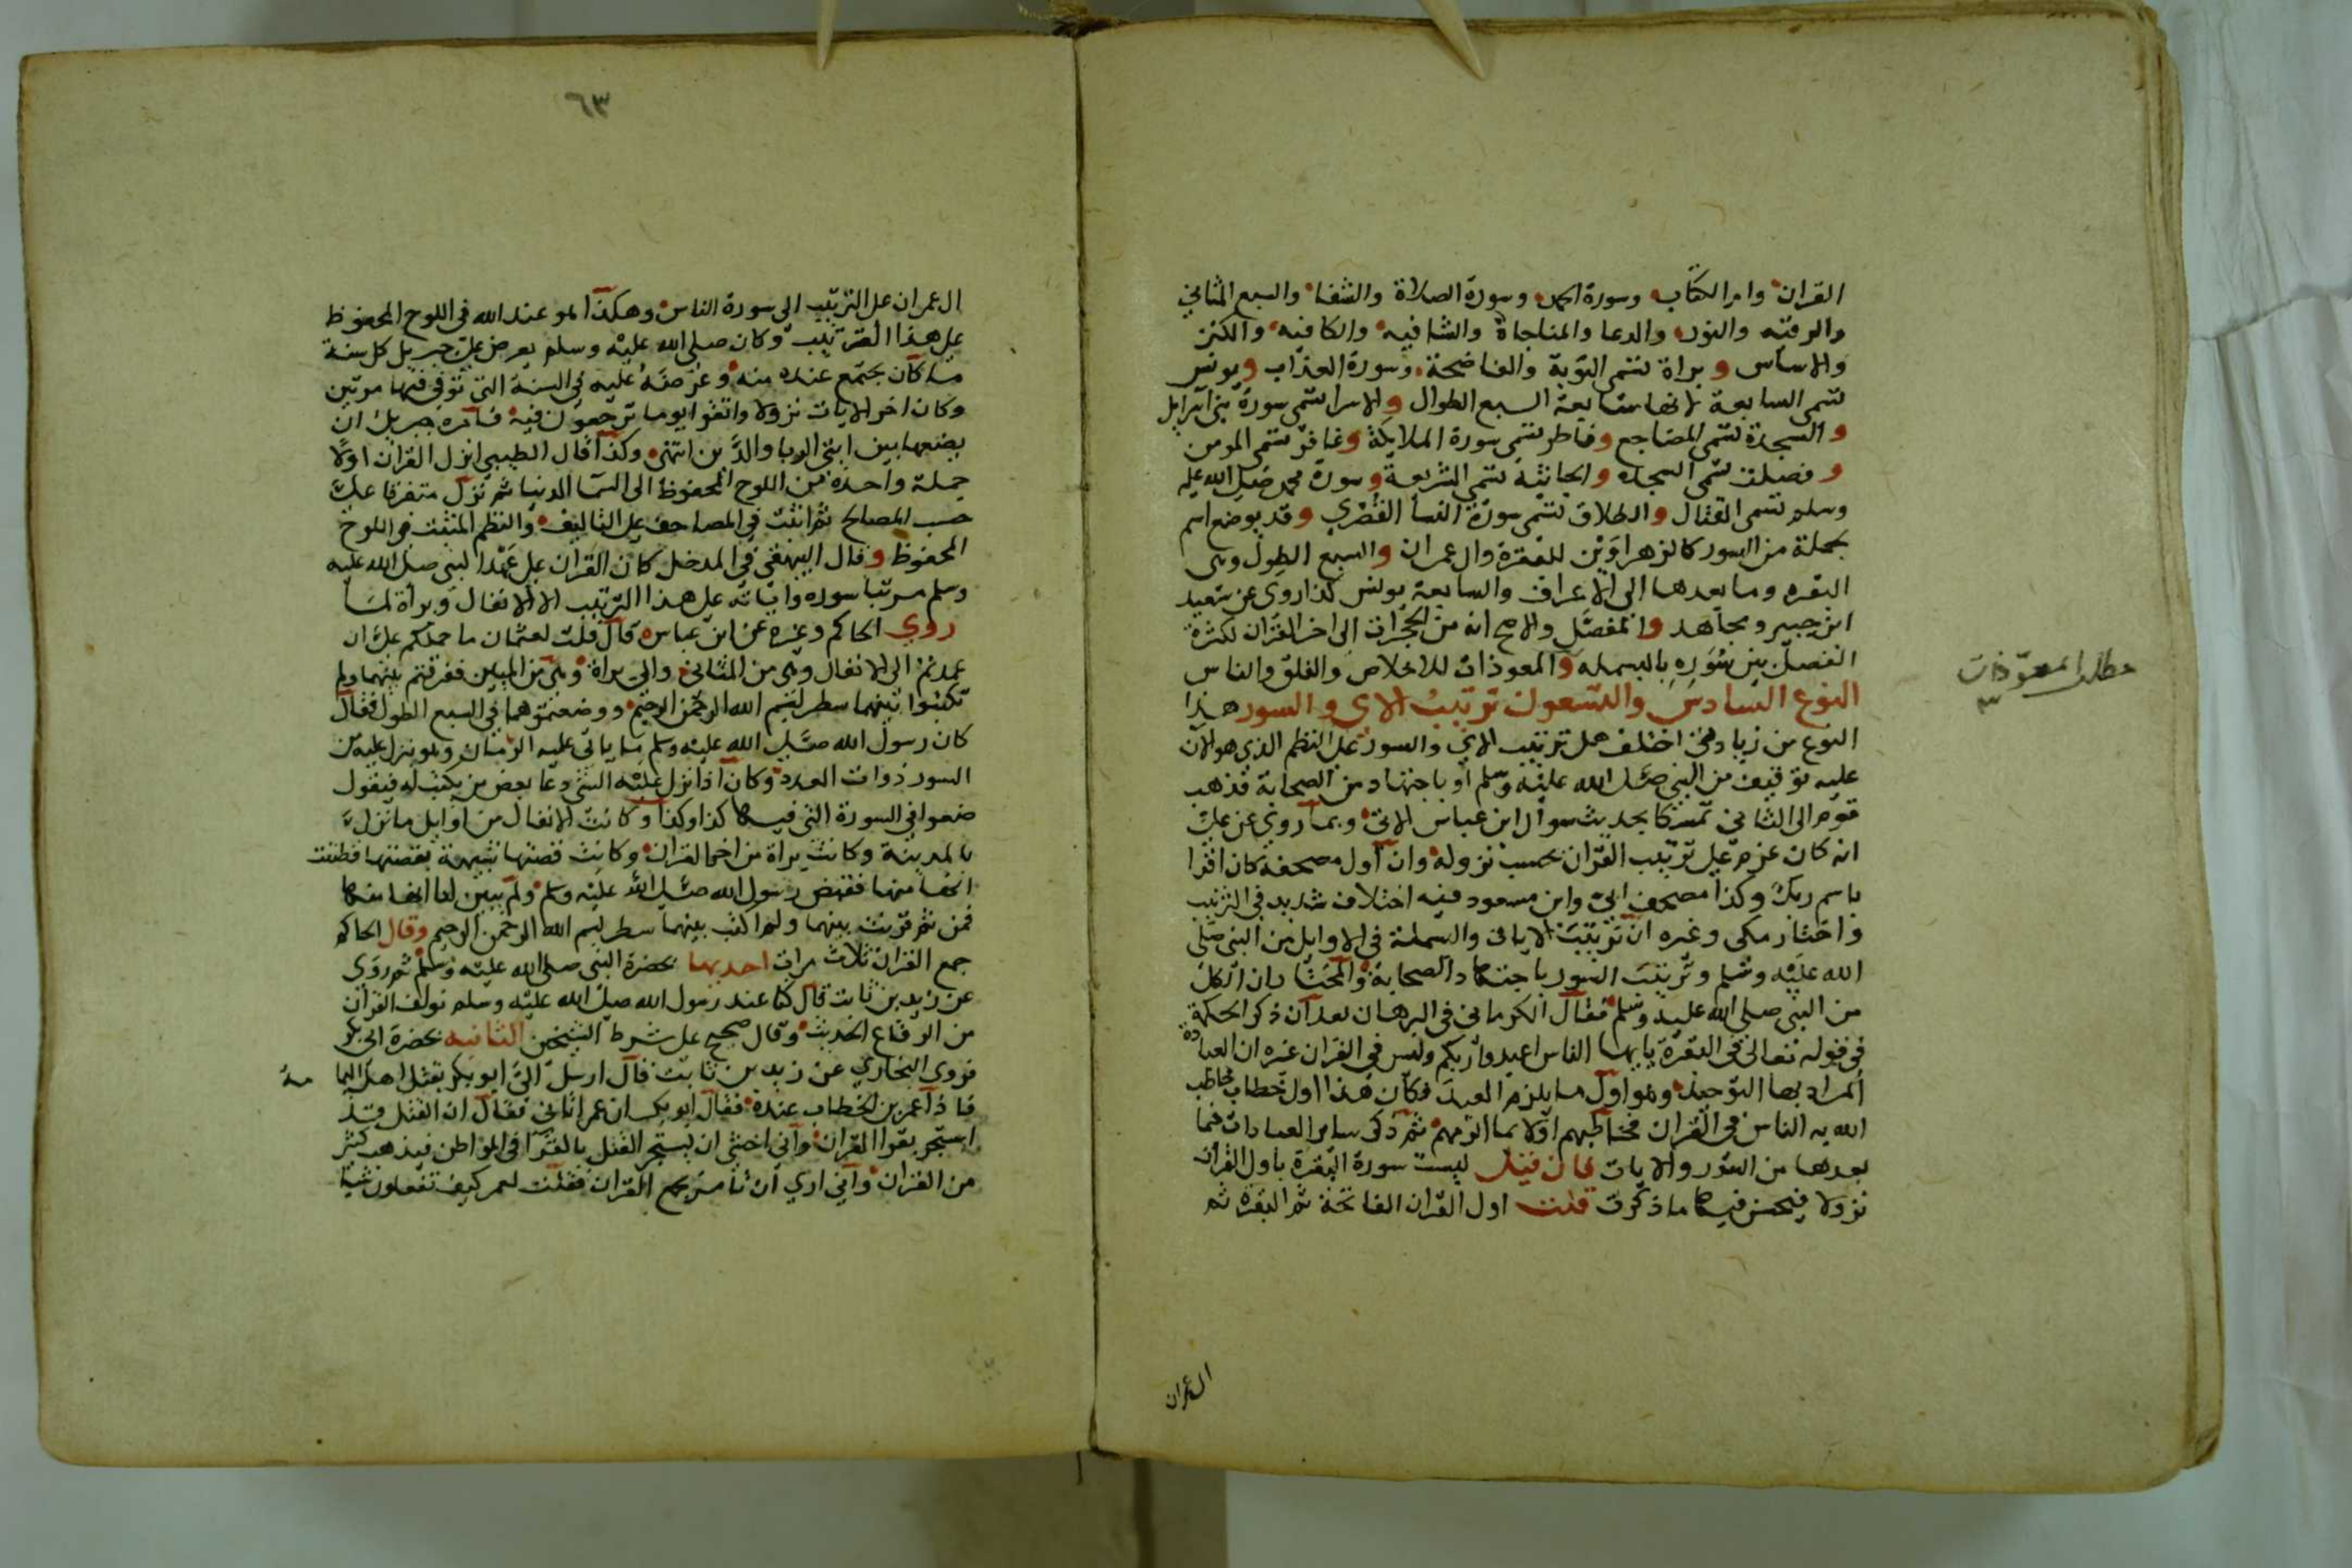 القران وام الكتاب وسورة الحمد وسورة الصلاة والشفا والسبع المثاني
والرقيه والنور والدعا والمناجاة والشافيه والكافيه والكنز
والاساس و براة تسمى التوبة والفاضحة وسورة العذاب ويونس
تسمى السابعة لانها سابعة السبع الطوال والاسرا تسمى سورة بني اسرايل
والسجدة تسمى المضاجع وفاطر تسمى سورة الملايكة وغافر تسمى المومن
وفصلت تسمى السجده والجاثية تسمى الشريعة وسورة محمد صلى الله عليه
وسلم تسمى القتال والطلاق تسمى سورة النسا القصرى وقد يوضع اسم
لجملة من السور كالزهراوين للبقرة وال عمران والسبع الطول وهى
البقره وما بعدها الى الاعراف والسابعة يونس كذا روى عن سعيد
ابن جبير ومجاهد والمفصل والاصح انه من الحجرات الى اخر القران لكثرة
الفصل بين سوره بالبسمله والمعوذات للاخلاص والفلق والناس
مطلب المعوذات
النوع السادس والتسعون ترتيب الاي والسور هذا
النوع من زيادتي اختلف هل ترتيب الاي والسور على النظم الذي هو الان
عليه توقيف من النبي صلى الله عليه وسلم او باجتهاد من الصحابة فذهب
قوم الى الثاني تمسكا بحديث سوال ابن عباس الاتي وبما روي عن علي
انه كان عزم على ترتيب القران بحسب نزوله وان اول مصحفه كان اقرا
باسم ربك وكذا مصحف ابي وابن مسعود فيه اختلاف شديد في الترتيب
واختار مكى وغيره ان ترتيب الايات والبسملة في الاوايل من النبي صلى
الله عليه وسلم وترتيب السور باجتهاد الصحابة والمختار ان الكل
من النبي صلى الله عليه وسلم فقال الكرماني في البرهان بعد ان ذكر الحكمة
في قوله تعالى في البقرة يايها الناس اعبدوا ربكم وليس في القران غيره ان العبادة
المراد بها التوحيد وهو اول ما يلزم العبد فكان هذا اول خطاب خاطب
الله به الناس في القران فخاطبهم اولا بما الزمهم ثم ذكر ساير العبادات فيما
بعدها من السور والايات فان قيل ليست سورة البقرة باول القران
نزولا فيحسن فيها ما ذكرت قلت اول القران الفاتحة ثم البقرة ثم
ال عمران
٦٣
ال عمران على الترتيب الى سورة الناس وهكذا هو عند الله في اللوح المحفوظ
على هذا الترتيب وكان صلى الله عليه وسلم يعرض على جبريل كل سنة
ما كان يجتمع عنده منه وعرضه عليه في السنة التي توفي فيها مرتين
وكان اخر الايات نزولا واتقوا يوما ترجعون فيه فامره جبريل ان
يضعها بين ايتي الربا والدين انتهى وكذا قال الطيبي انزل القران اولا
جملة واحدة من اللوح المحفوظ الى السما الدنيا ثم نزل متفرقا على
حسب المصالح ثم اثبت في المصاحف على التاليف والنظم المثبت في اللوح
المحفوظ وقال البيهقي في المدخل كان القران على عهد النبي صلى الله عليه
وسلم مرتبا سوره واياته على هذا الترتيب الا الانفال وبراة لما
روي الحاكم وغيره عن ابن عباس قال قلت لعثمان ما حملكم على ان
عمدتم الى الانفال وهى من المثاني والى براة وهى من الميين فقرنتم بينهما ولم
تكتبوا بينهما سطر بسم الله الرحمن الرحيم ووضعتموهما في السبع الطول فقال
كان رسول الله صلى الله عليه وسلم مما ياتي عليه الزمان وهو ينزل عليه من
السور ذوات العدد وكان اذا نزل عليه الشي دعا بعض من يكتب له فيقول
ضعوا في السورة التي فيها كذا وكذا وكانت الانفال من اوايل ما نزل
بالمدينة وكانت براة من اخر القران وكانت قصتها شبيهة بقصتها فظننت
انها منها فقبض رسول الله صلى الله عليه وسلم ولم يبين لنا انها منها
فمن ثم قرنت بينهما ولم اكتب بينهما سطر بسم الله الرحمن الرحيم وقال الحاكم
جمع القران ثلاث مرات احديها بحضرة النبي صلى الله عليه وسلم ثم روى
عن زيد بن ثابت قال كنا عند رسول الله صلى الله عليه وسلم نولف القران
من الرقاع الحديث وقال صحيح على شرط الشيخين الثانيه بحضرة ابي بكر
فروى البخاري عن زيد بن ثابت قال ارسل الي ابو بكر بقتل اهل اليمامة
فاذا عمر بن الخطاب عنده فقال ابو بكر ان عمر اتاني فقال ان القتل قد
استحر بقرا القران واني اخشى ان يستحر القتل بالقرا في المواطن فيذهب كثير
من القران واني ارى ان تامر بجمع القران فقلت لعمر كيف تفعلون شيا